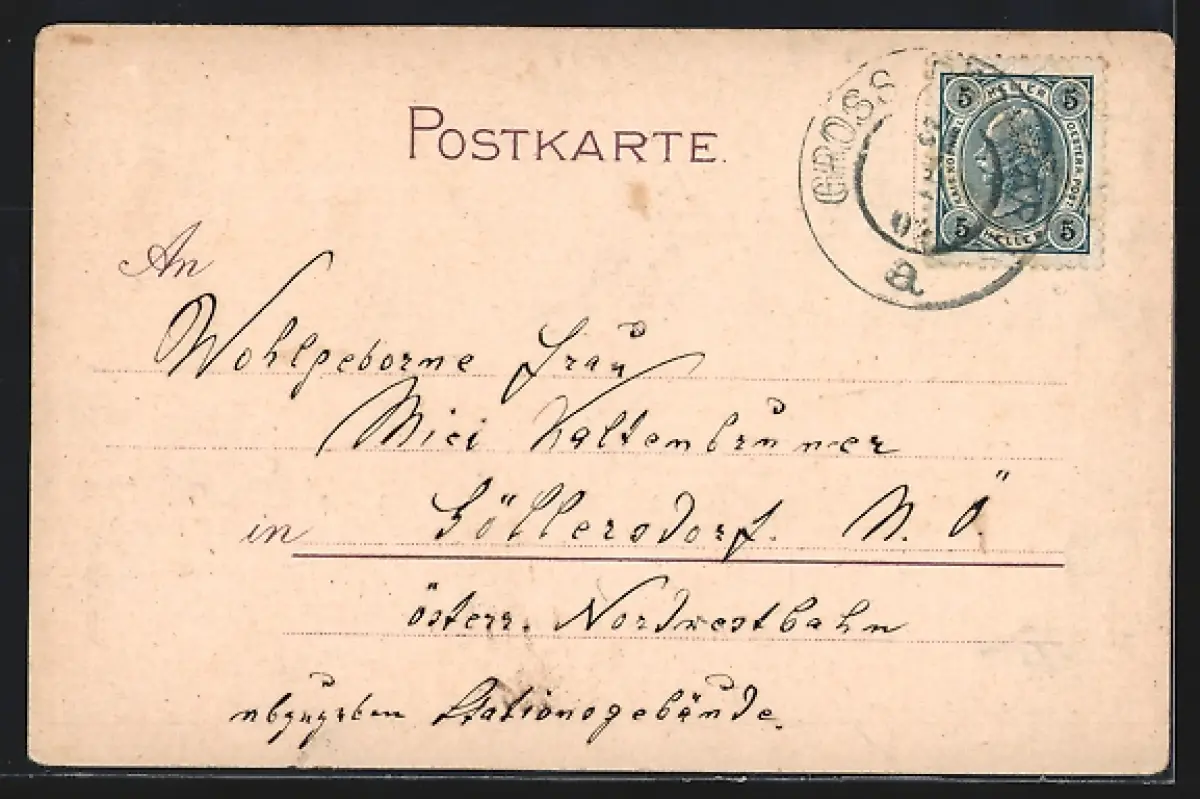 POSTKARTE.
GROSS
a
5 HELLER 5
OESTERR. POST.
5 HELLER 5
An
Wohlgeborne Frau
Mici Kaltenbrunner
in Göllersdorf. N. Ö.
österr. Nordwestbahn
abzugeben Stationsgebäude.